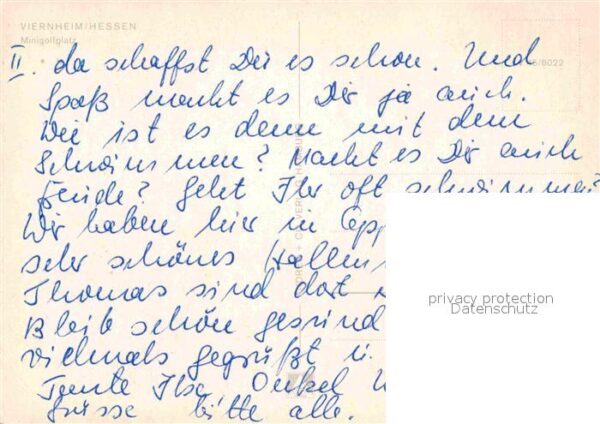 VIERNHEIM/HESSEN
Minigolfplatz
II. da schaffst Du es schon. Und
Spaß macht es Dir ja auch.
Wie ist es denn mit dem
Schwimmen? Macht es Dir auch
Freude? Geht Ihr oft schwimmen?
Wir haben hier in Epp
sehr schönes Hallen
Thomas sind dort
Bleib schön gesund
vielmals gegrüßt u.
Tante Ilse, Onkel
Grüsse bitte alle.
privacy protection
Datenschutz